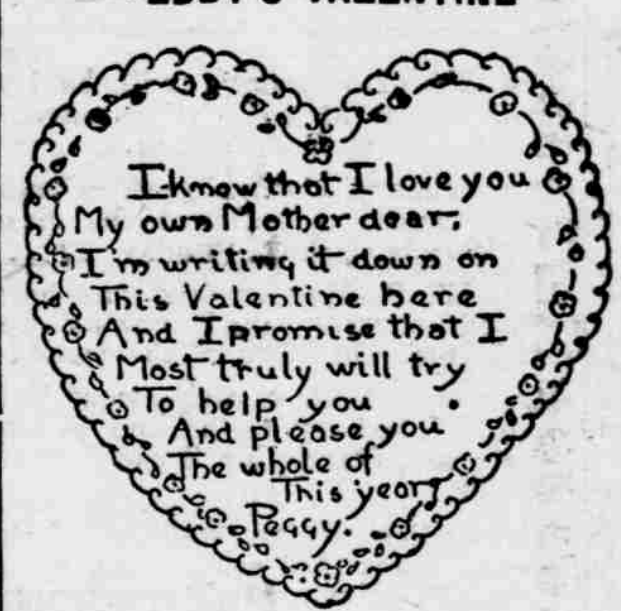 VALENTINE
I know that I love you
My own Mother dear,
I'm writing it down on
This Valentine here
And I promise that I
Most truly will try
To help you
And please you
The whole of
This year,
Peggy.